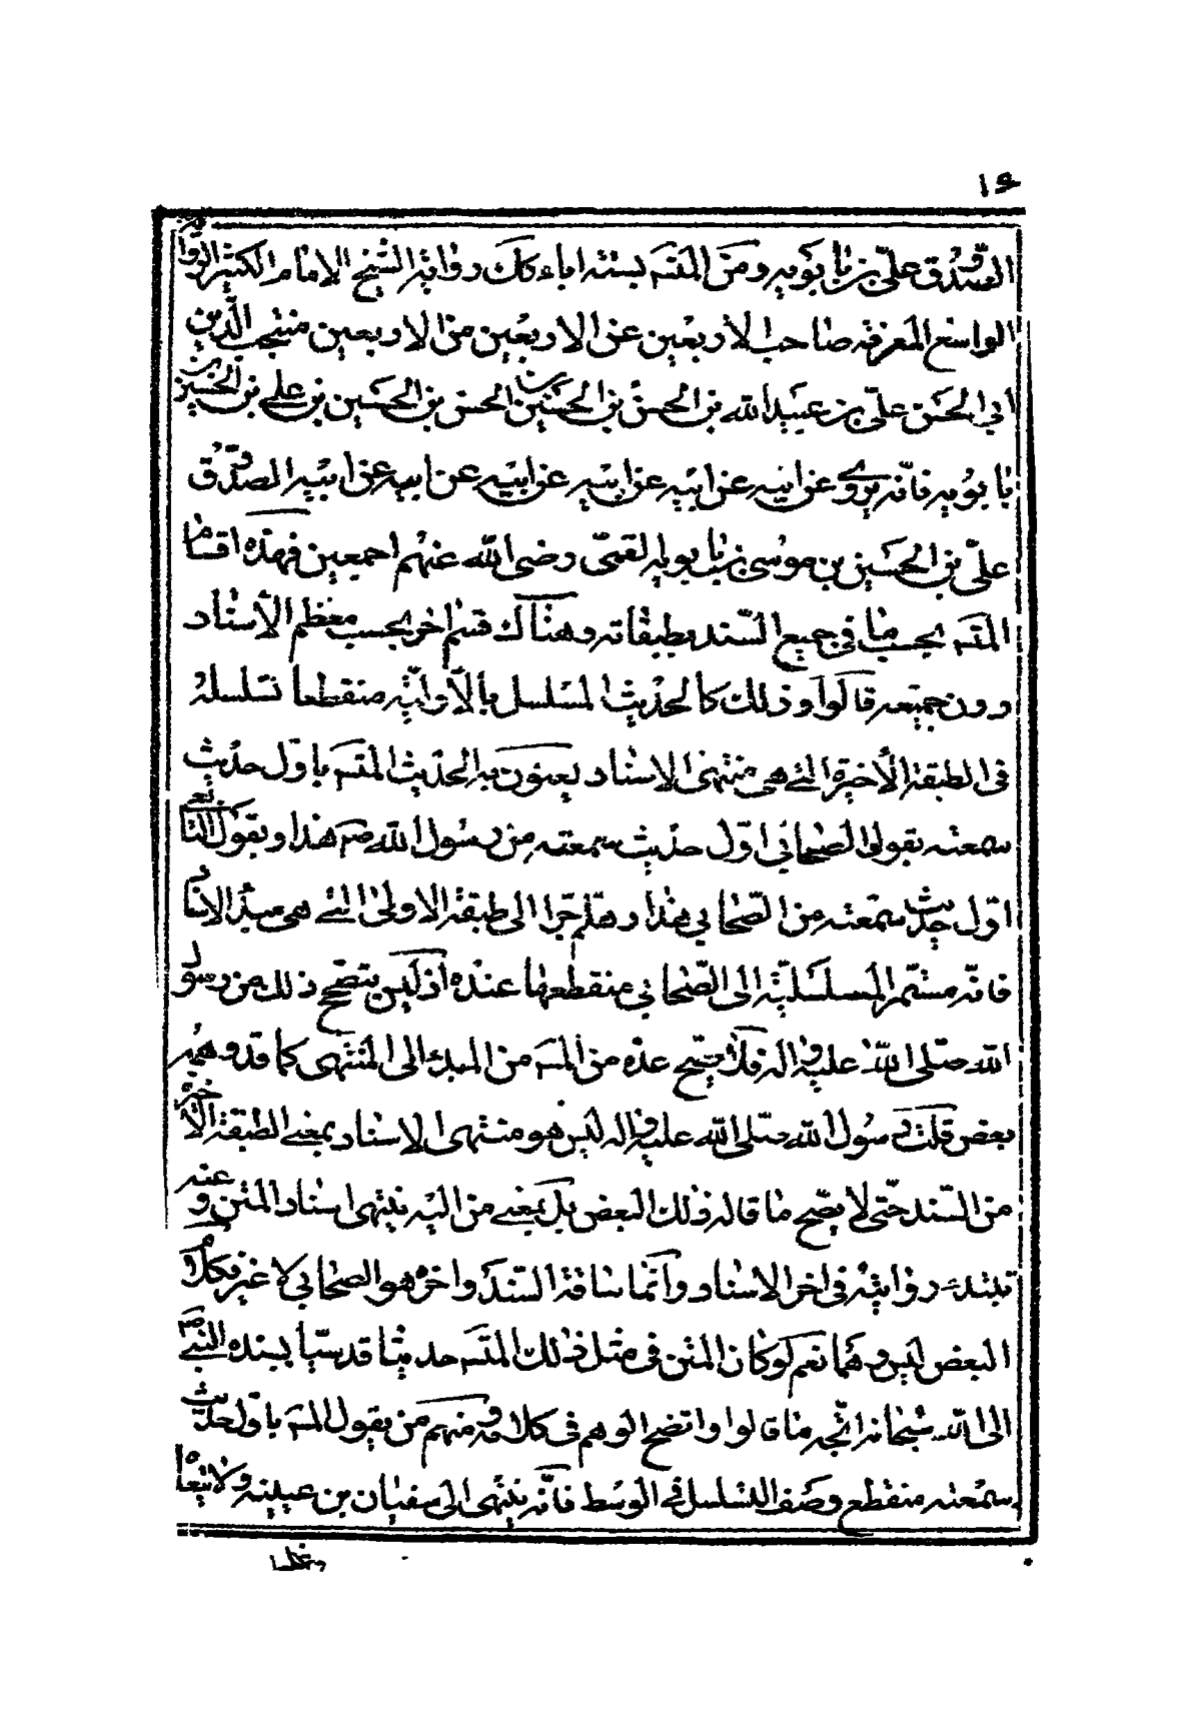 ١٤
الصدوق علي بن بابويه ومن المتسم بستة اباء كك رواية الشيخ الامام الكثير الرواية
الواسع المعرفة صاحب الاربعين عن الاربعين من الاربعين منتجب الدين
ابي الحسن علي بن عبيد الله بن الحسن بن الحسين بن الحسن بن الحسين بن علي بن الحسين بن
بابويه فانه يروي عن ابيه عن ابيه عن ابيه عن ابيه عن ابيه عن ابيه الصدوق
علي بن الحسين بن موسى بن بابويه القمي رضي الله عنهم اجمعين فهذه اقسام
المتسم بحسب ما في جميع السند بطبقاته وهناك قسم اخر بحسب معظم الاسناد
دون جميعه قالوا وذلك كالحديث المسلسل بالاولية منقطعا تسلسله
في الطبقة الاخيرة التي هي منتهى الاسناد يعنون به الحديث المتسم باول حديث
سمعته يقول الصحابي اول حديث سمعته من رسول الله صم هذا ويقول التابعي
اول حديث سمعته من الصحابي هذا وهلم جرا الى طبقة الاولى التي هي مبدء الاسناد
فانه مستمر المسلسلية الى الصحابي منقطعها عنده اذ ليس يتصحح ذلك من رسول
الله صلى الله عليه واله فلا يصح عده من المسم من المبدء الى المنتهى كما قد وهمه
بعض قلت رسول الله صلى الله عليه واله ليس هو منتهى الاسناد بمعنى الطبقة الاخيرة
من السند حتى لا يصح ما قاله ذلك البعض بل بمعنى من اليه ينتهي اسناد المتن وعنه
تبتدء روايته في اخر الاسناد وانما ساقة السند واخره هو الصحابي لا غير فكلام
البعض ليس وهما نعم لو كان المتن في مثل ذلك المتسم حديثا قدسيا يسنده النبي ص
الى الله سبحانه اتجه ما قالوا واتضح الوهم في كلامه ومنهم من يقول المسم باول حديث
سمعته منقطع وصف التسلسل في الوسط فانه ينتهي الى سفيان بن عيينة ولا يتعداه